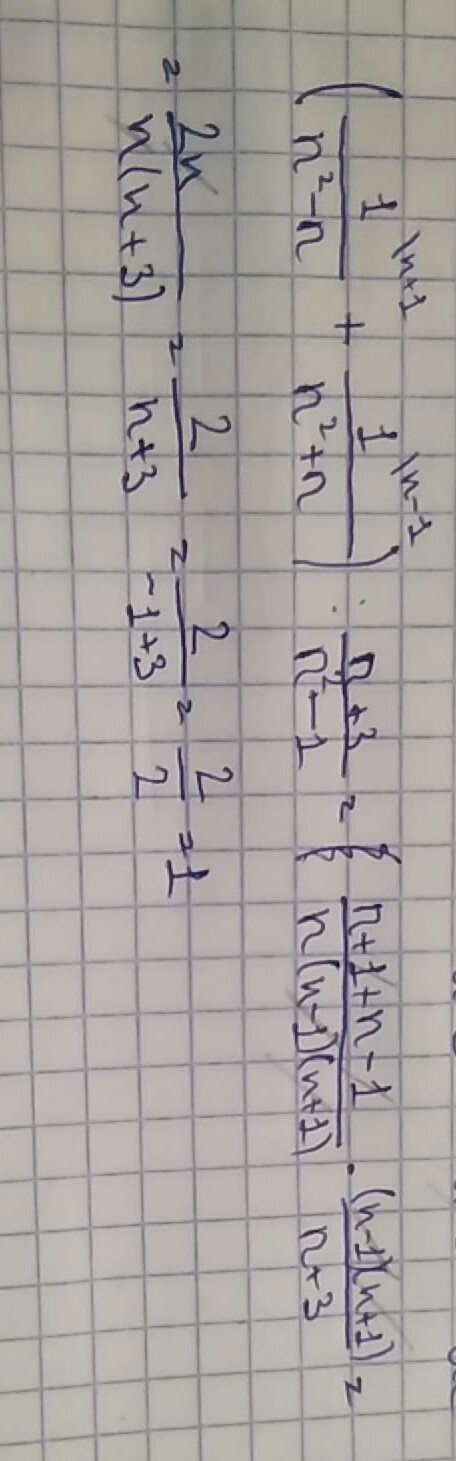 (1/(n²-n) \n+1 + 1/(n²+n) \n-1) : (n+3)/(n²-1) = (n+1+n-1)/(n(n-1)(n+1)) · ((n-1)(n+1))/(n+3) =
= 2n/(n(n+3)) = 2/(n+3) = 2/(-1+3) = 2/2 = 1